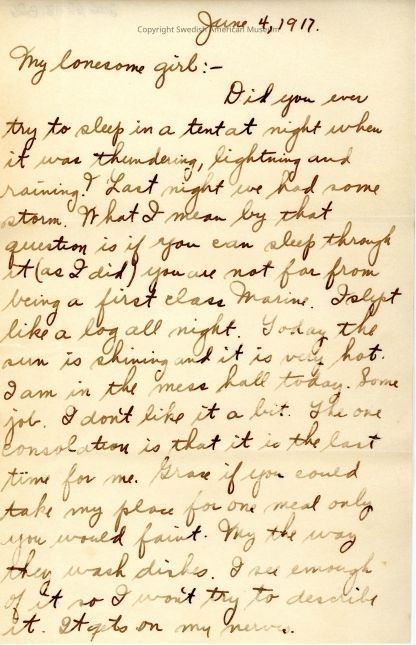 June 4, 1917.
Copyright Swedish American Museum
My lonesome girl:-
Did you ever
try to sleep in a tent at night when
it was thundering, lightning and
raining? Last night we had some
storm. What I mean by that
question is if you can sleep through
it (as I did) you are not far from
being a first class Marine. I slept
like a log all night. Today the
sun is shining and it is very hot.
I am in the mess hall today. Some
job. I don't like it a bit. The one
consolation is that it is the last
time for me. Grace if you could
take my place for one meal only
you would faint. My the way
they wash dishes. I see enough
of it so I won't try to describe
it. It gets on my nerves.